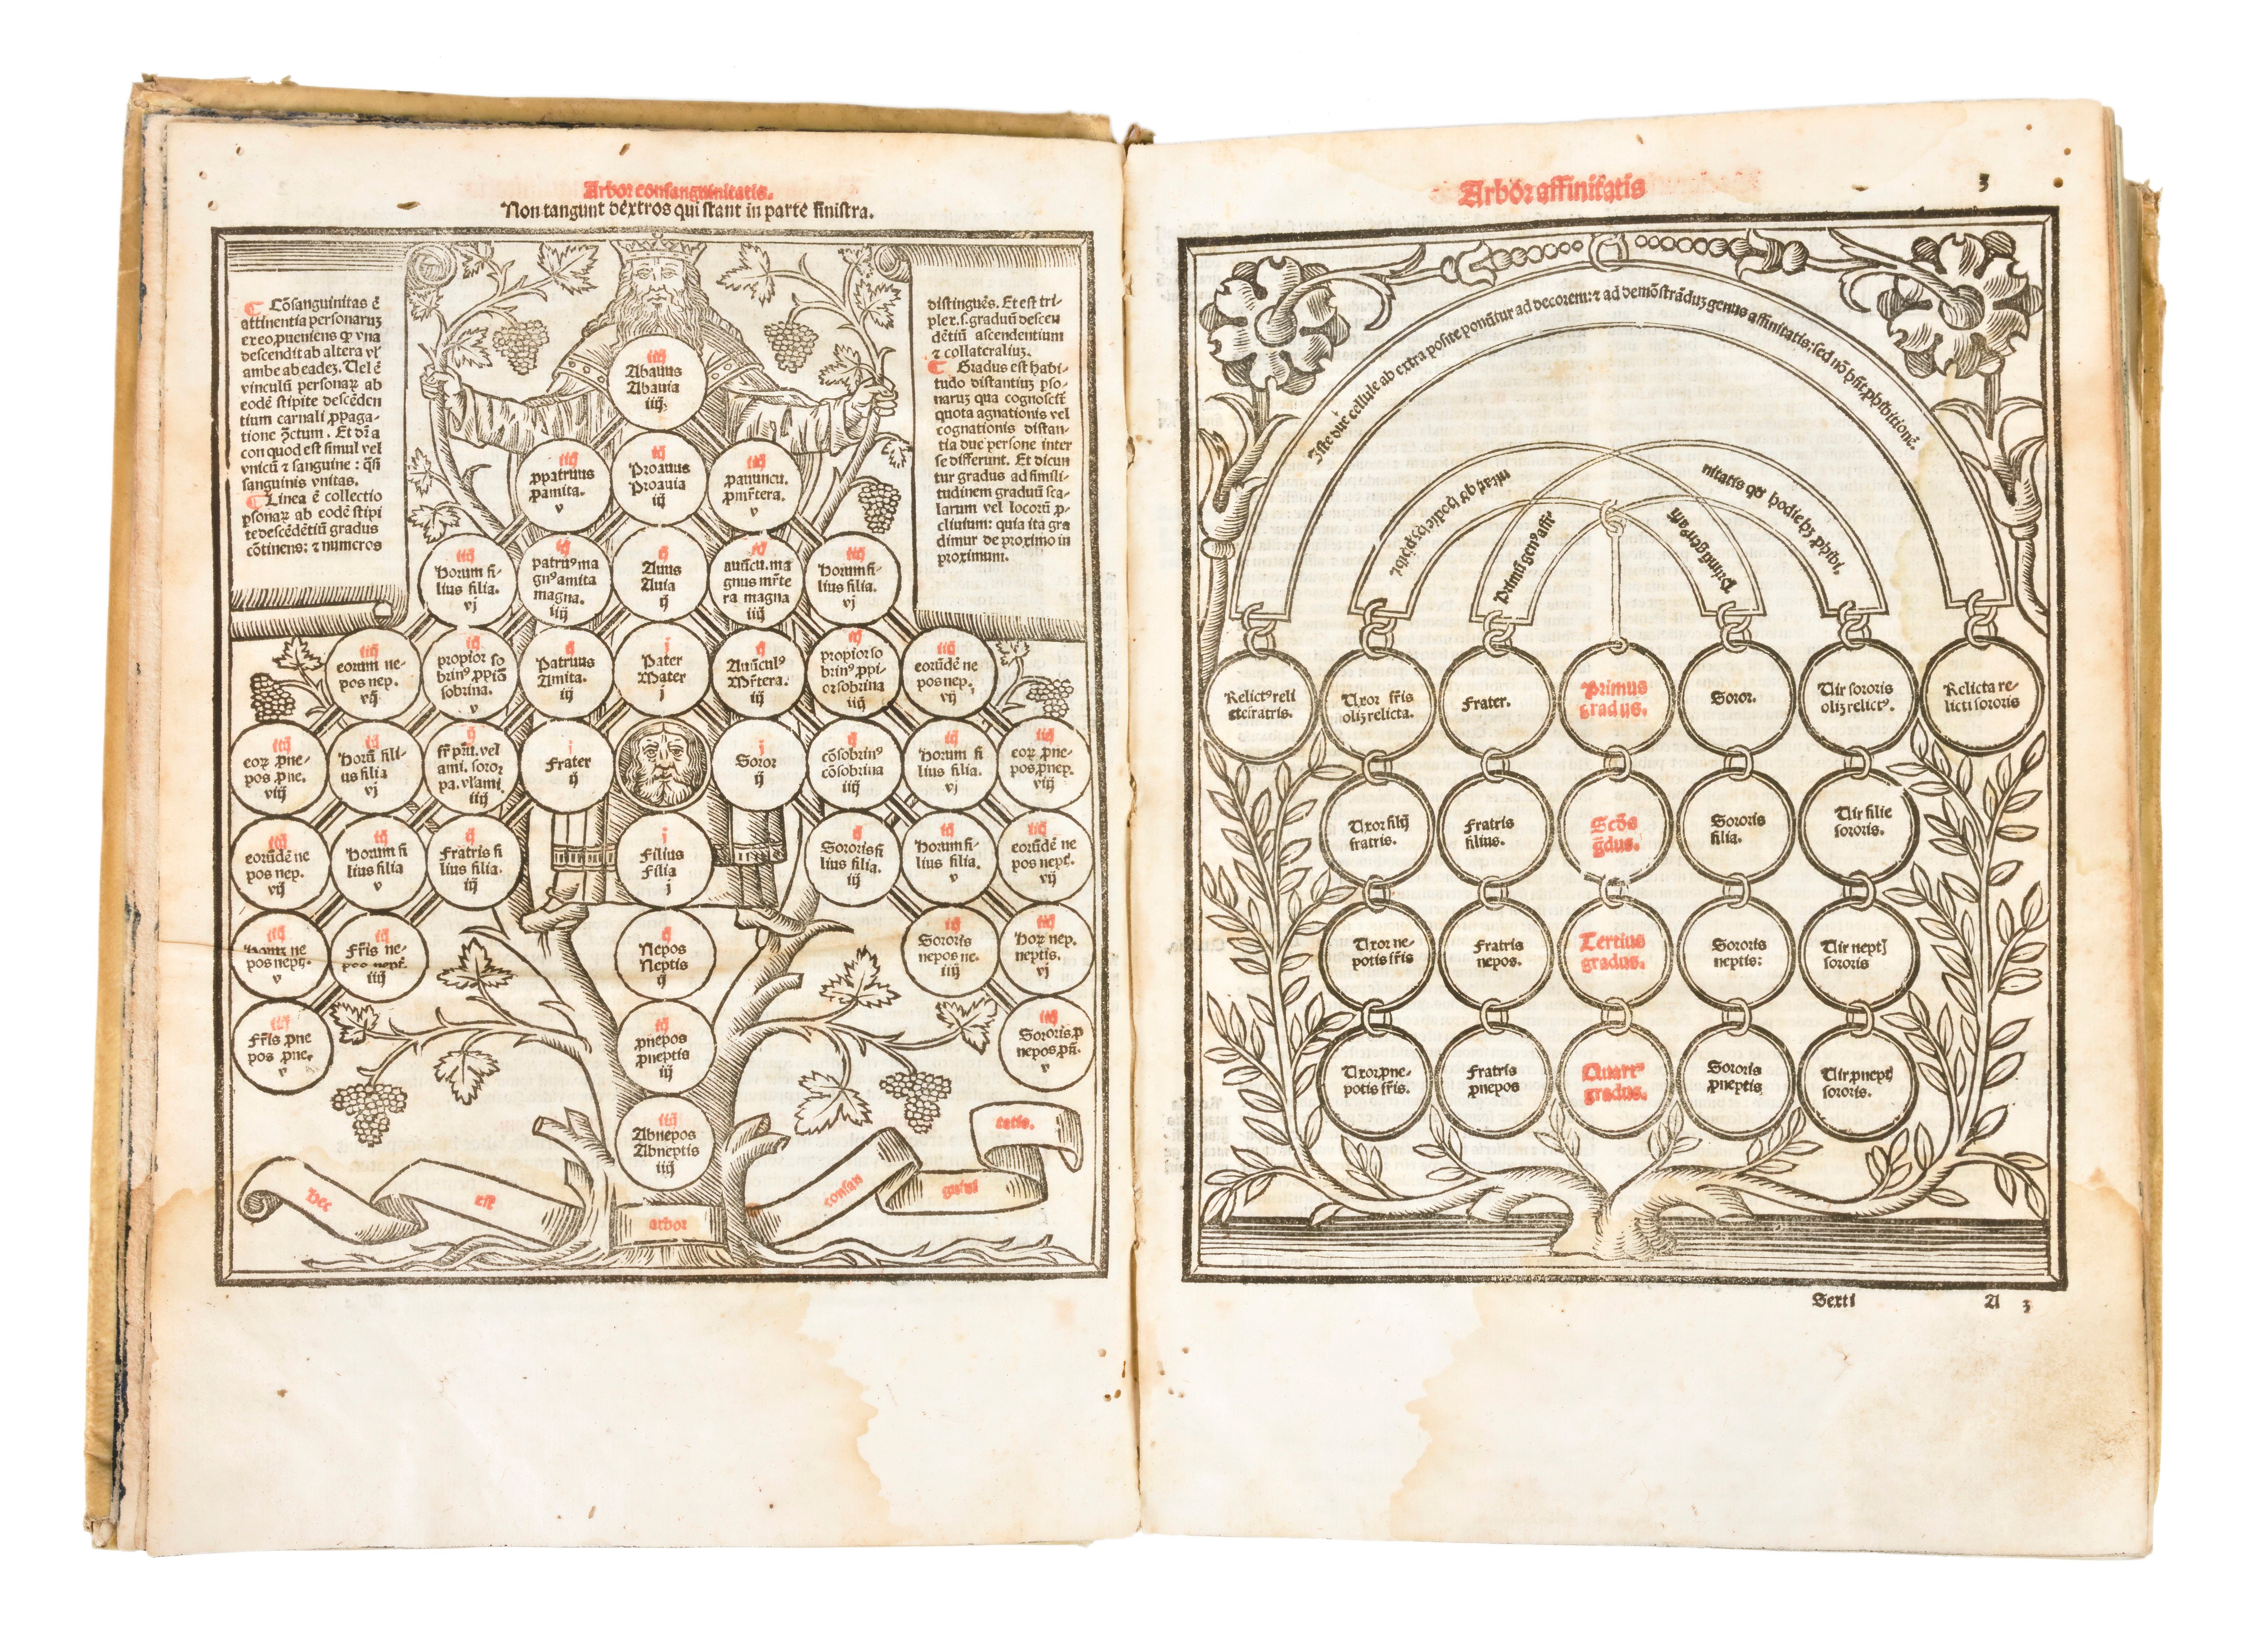 Arbor consanguinitatis.
Non tangunt dextros qui stant in parte sinistra.
¶ Cōsanguinitas ē
attinentia personaruꝫ
ex eo ꝓueniens ꝙ vna
descendit ab altera vł
ambe ab eadeꝫ. Uel ē
vinculū personaꝝ ab
eodē stipite descēden
tium carnali ꝓpaga-
tione ꝯctum. Et dr̄ a
con quod est simul vel
vnicū ⁊ sanguine : q̄si
sanguinis vnitas.
¶ Linea ē collectio
ꝑsonaꝝ ab eodē stipi
te descēdētiū gradus
cōtinens: ⁊ numeros
distinguēs. Et est tri-
plex. s. graduū descen
dētiū ascendentium
⁊ collateraliuꝫ.
¶ Gradus est habi-
tudo distantiuꝫ ꝑso-
naruꝫ qua cognoscit̄
quota agnationis vel
cognationis distan-
tia due persone inter
se differunt. Et dicun
tur gradus ad simili-
tudinem graduū sca-
larum vel locorū ꝓ-
cliuium: quia ita gra
dimur de proximo in
proximum.
iiij
Abauus
Abauia
iiij
iiij
ꝓpatruus
ꝓamita.
v
iij
Proauus
Proauia
iij
iiij
ꝓauuncu.
ꝓmr̄tera.
v
iiij
Horum fi-
lius filia.
vj
iij
patruꝰ ma
gnꝰ amita
magna.
iiij
ij
Auus
Auia
ij
iij
auūcu. ma
gnus mr̄te
ra magna
iiij
iiij
Horum fi-
lius filia.
vj
iiij
eorum ne-
pos nep.
vij
iij
propior so
brinꝰ ꝓpiō
sobrina.
v
ij
Patruus
Amita.
iij
j
Pater
Mater
j
ij
Auūculꝰ
Mr̄tera.
iij
iij
propior so
brinꝰ ꝓpi-
or sobrina
iiij
eorūdē ne
pos nep.
vij
iiij
eoꝝ ꝓne-
pos ꝓne.
viij
iij
Horū fili-
us filia
vj
ij
fr̄ pr̄ui. vel
ami. soror
pa. vł ami
iiij
j
Frater
ij
j
Soror
ij
ij
cōsobrinꝰ
cōsobrina
iiij
iij
Horum fi
lius filia.
vj
iiij
eoꝝ ꝓne-
pos ꝓnep.
viij
iiij
eorūdē ne
pos nep.
vij
iij
Horum fi
lius filia
v
ij
Fratris fi
lius filia.
iij
j
Filius
Filia
j
ij
Sororis fi
lius filia.
iij
iij
Horum fi-
lius filia.
v
iiij
eorūdē ne
pos nept.
vij
iiij
Horum ne
pos nept.
v
iij
Fr̄is ne-
pos nept.
iiij
ij
Nepos
Neptis
ij
iij
Sororis
nepos ne.
iiij
iiij
Hoꝝ nep.
neptis.
vj
iiij
Fr̄is ꝓne
pos ꝓne.
v
iij
ꝓnepos
ꝓneptis
iij
iiij
Sororis ꝓ
nepos ꝓn̄.
v
iiij
Abnepos
Abneptis
iiij
Hec
est
arbor
consan
guini
tatis.
Arbor affinitatis
3
Iste due cellule ab extra posite ponūtur ad decorem: ⁊ ad demōstrāduꝫ genus affinitatis: sed nō hn̄t ꝓhibitionē.
nitatis qd̓ hodie hꝫ ꝓhibi.
Primū genꝰ affi
nitatis qd̓ hodie hꝫ ꝓhibi.
Primū genꝰ affi
Relictꝰ reli
cte fratris.
Uxor fr̄is
oliꝫ relicta.
Frater.
Primus
gradus.
Soror.
Uir sororis
oliꝫ relictꝰ.
Relicta re-
licti sororis
Uxor filij
fratris.
Fratris
filius.
Scd̄s
gdus.
Sororis
filia.
Uir filie
sororis.
Uxor ne-
potis fr̄is
Fratris
nepos.
Tertius
gradus.
Sororis
neptis:
Uir neptꝭ
sororis
Uxor ꝓne-
potis fr̄is.
Fratris
ꝓnepos
Quartꝰ
gradus.
Sororis
ꝓneptis
Uir ꝓneptꝭ
sororis.
Sexti
A 3